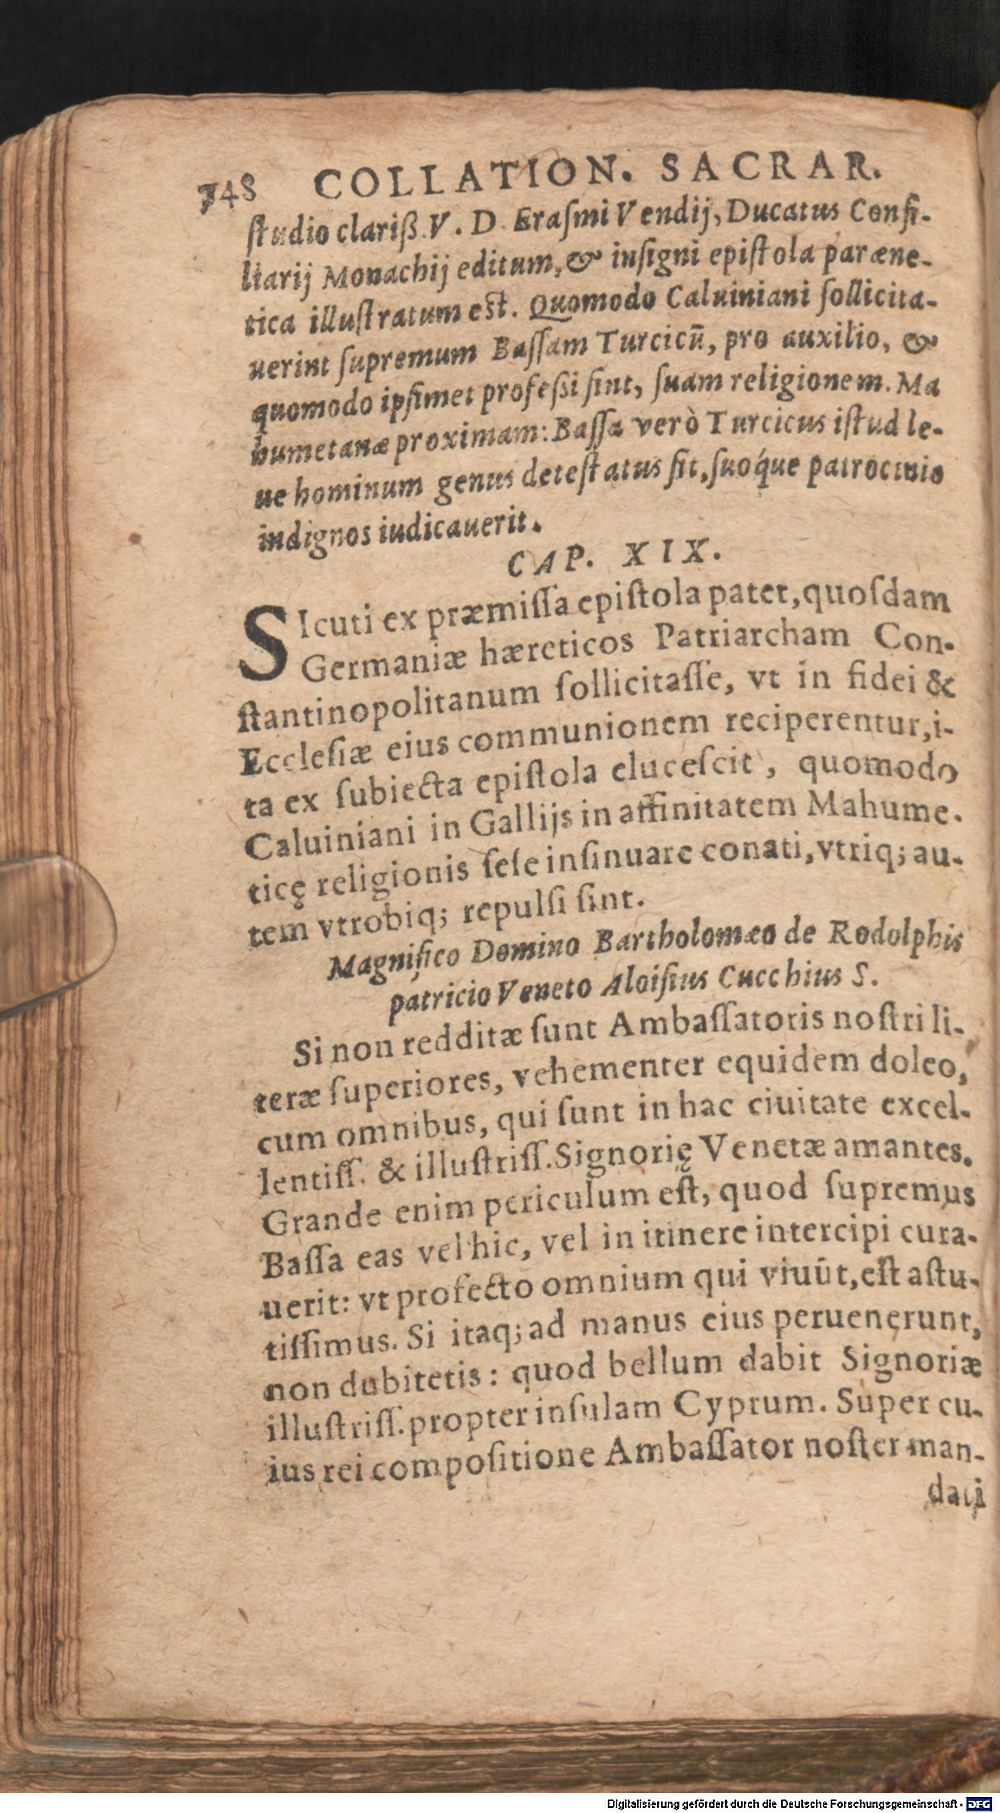 748 COLLATION. SACRAR.
ſtudio clariß. V. D. Eraſmi Vendij, Ducatus Conſi-
liarij Monachij editum, & inſigni epiſtola paræne-
tica illuſtratum est. Quomodo Caluiniani ſollicita-
uerint ſupremum Baſſam Turcicũ, pro auxilio, &
quomodo ipſimet profeßi ſint, ſuam religionem. Ma
humetanæ proximam: Baſſa verò Turcicus iſtud le-
ue hominum genus deteſtatus ſit, ſuoq́ue patrocinio
indignos iudicauerit.
CAP. XIX.
SIcuti ex præmiſſa epiſtola patet, quoſdam
Germaniæ hæreticos Patriarcham Con-
ſtantinopolitanum ſollicitaſſe, vt in fidei &
Eccleſiæ eius communionem reciperentur, i-
ta ex ſubiecta epiſtola eluceſcit, quomodo
Caluiniani in Gallijs in affinitatem Mahume-
ticę religionis ſeſe inſinuare conati, vtriq; au-
tem vtrobiq; repulſi ſint.
Magnifico Domino Bartholomæo de Rodolphis
patricio Veneto Aloiſius Cucchius S.
Si non redditæ ſunt Ambaſſatoris noſtri li-
teræ ſuperiores, vehementer equidem doleo,
cum omnibus, qui ſunt in hac ciuitate excel-
lentiſſ. & illuſtriſſ. Signorię Venetæ amantes.
Grande enim periculum eſt, quod ſupremus
Baſſa eas vel hic, vel in itinere intercipi cura-
uerit: vt profecto omnium qui viuũt, eſt aſtu-
tiſſimus. Si itaq; ad manus eius peruenerunt,
non dubitetis: quod bellum dabit Signoriæ
illuſtriſſ. propter inſulam Cyprum. Super cu-
ius rei compoſitione Ambaſſator noſter man-
dati
Digitalisierung gefördert durch die Deutsche Forschungsgemeinschaft - DFG